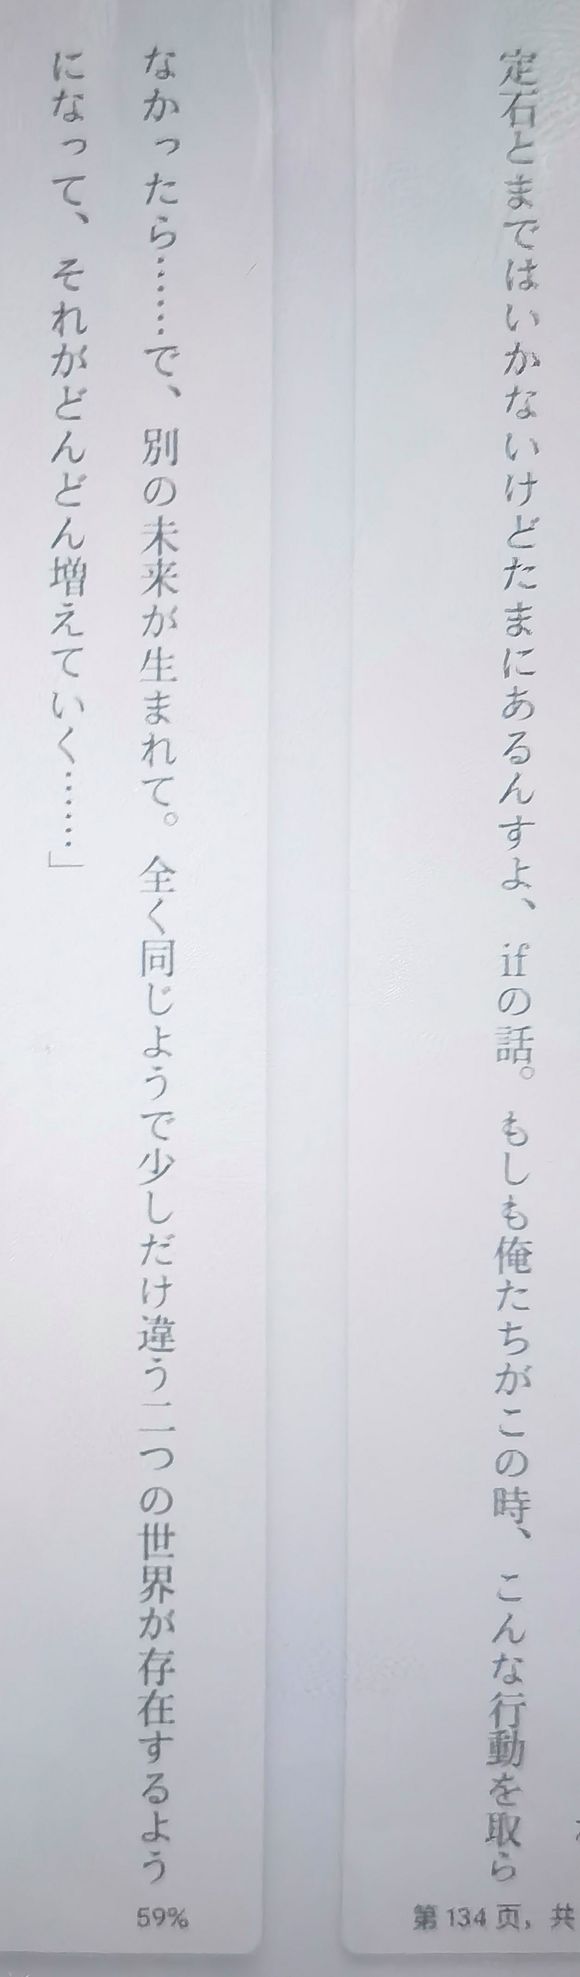 定石とまではいかないけどたまにあるんすよ、ifの話。もしも俺たちがこの時、こんな行動を取ら
なかったら……で、別の未来が生まれて。全く同じようで少しだけ違う二つの世界が存在するよう
になって、それがどんどん増えていく……」
第134页，共
59%